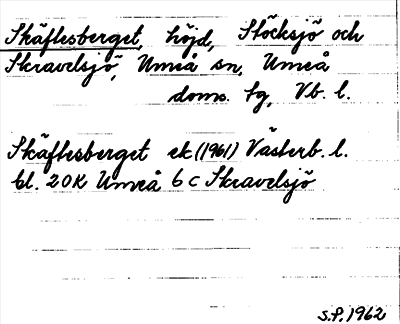 Skäftesberget, höjd, Stöcksjö och
Skravelsjö, Umeå sn, Umeå
doms. tg, Vb. l.
Skäftesberget ek (1961) Västerb. l.
bl. 20K Umeå 6c Skravelsjö
S.P. 1962